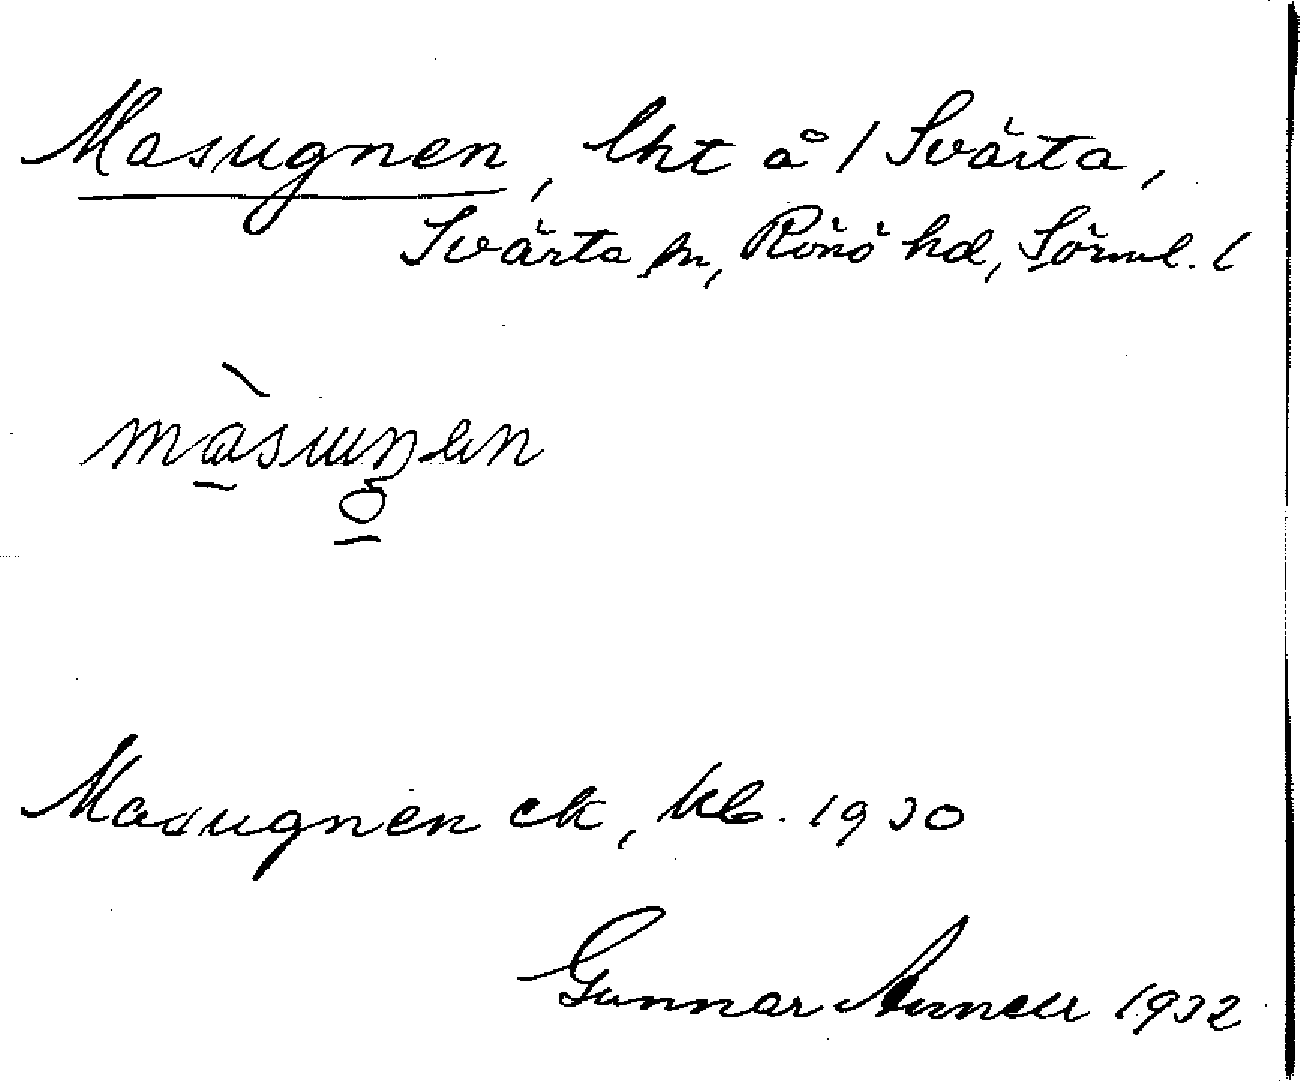 Masugnen, lht å 1 Svärta,
Svärta sn, Rönö hd, Sörml. l
màsuŋen
Masugnen ek, kb. 1930
Gunnar 1932